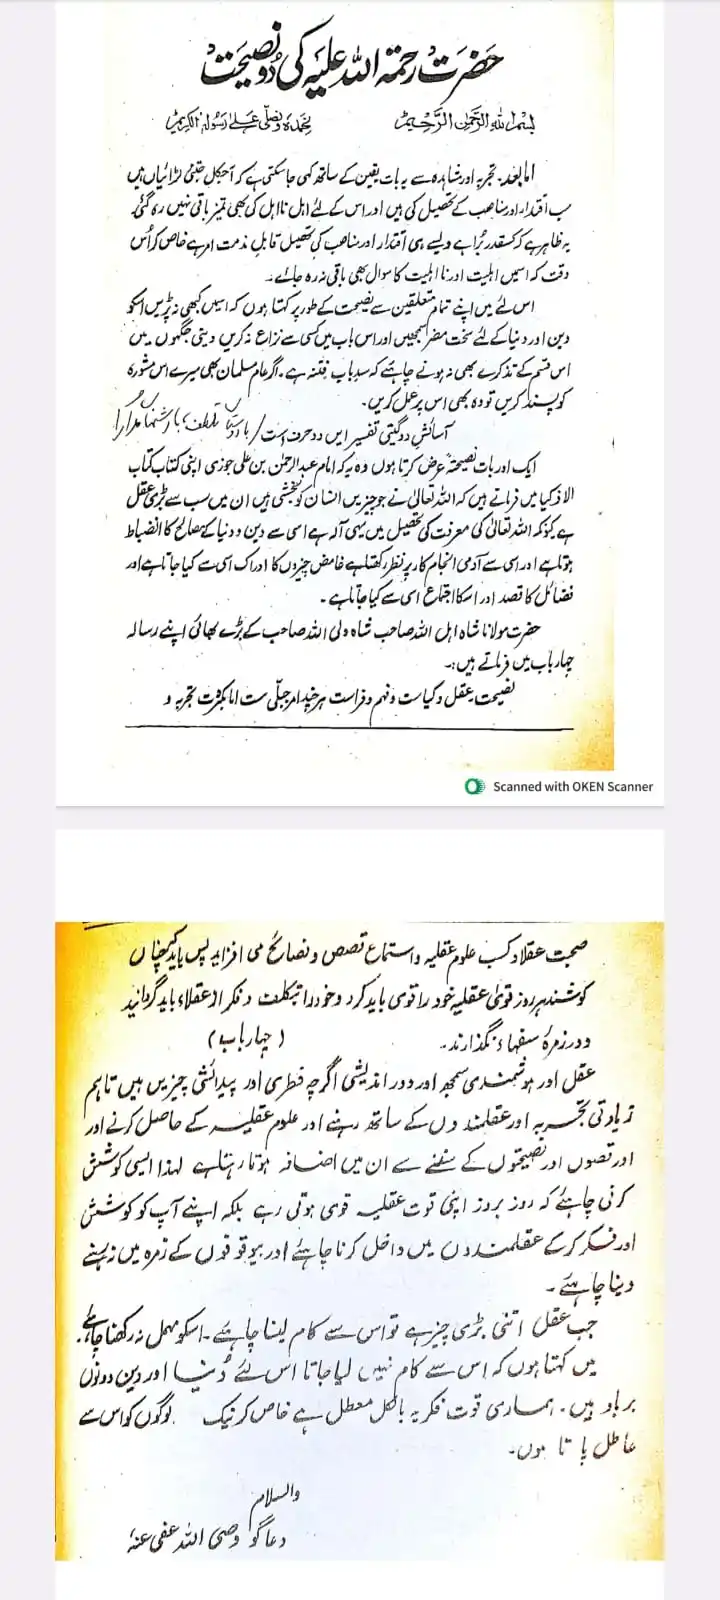 حضرت رحمۃ اللہ علیہ کی دو نصیحت
بسم اللہ الرحمٰن الرحیم نحمدہ ونصلی علیٰ رسولہ الکریم
اما بعد۔ تجربہ اور مشاہدہ سے یہ بات یقین کے ساتھ کہی جا سکتی ہے کہ آجکل جتنی لڑائیاں ہیں
سب اقتدار اور مناصب کے تحصیل کی ہیں اور اس کے لئے اہل نا اہل کی بھی تمیز باقی نہیں رہ گئی
یہ ظاہر ہے کہ کسقدر بُرا ہے ویسے ہی اقتدار اور مناصب کی تحصیل قابلِ مذمت امر ہے خاص کر اُس
وقت کہ اسمیں اہلیت اور نا اہلیت کا سوال بھی باقی نہ رہ جائے۔
اس لئے میں اپنے تمام متعلقین سے نصیحت کے طور پر کہتا ہوں کہ اسمیں کبھی نہ پڑیں اسکو
دین اور دنیا کے لئے سخت مضر سمجھیں اور اس باب میں کسی سے نزاع نہ کریں دینی جگہوں میں
اس قسم کے تذکرے بھی نہ ہونے چاہئے کہ سد باب فتنہ ہے۔ اگر عام مسلمان بھی میرے اس مشورہ
کو پسند کریں تو وہ بھی اس پر عمل کریں۔
آسائش دو گیتی تفسیر ایں دو حرف است / با دوستاں تلطف، با دشمناں مدارا
ایک اور بات نصیحتہً عرض کرتا ہوں وہ یہ کہ امام عبدالرحمٰن بن علی جوزی اپنی کتاب کتاب
الاذکیا میں فرماتے ہیں کہ اللہ تعالیٰ نے جو چیزیں انسان کو بخشی ہیں ان میں سب سے بڑی عقل
ہے کیونکہ اللہ تعالیٰ کی معرفت کی تحصیل میں یہی آلہ ہے اسی سے دین و دنیا کے مصالح کا انضباط
ہوتا ہے اور اسی سے آدمی انجام کار پر نظر رکھتا ہے غامض چیزوں کا ادراک اسی سے کیا جاتا ہے اور
فضائل کا قصد اور اسکا اجتماع اسی سے کیا جاتا ہے۔
حضرت مولانا شاہ اہل اللہ صاحب شاہ ولی اللہ صاحب کے بڑے بھائی اپنے رسالہ
چہار باب میں فرماتے ہیں:۔
نصیحت عقل و کیاست و فہم و فراست ہر چند امر جبلّی ست اما بکثرت تجربہ و
Scanned with OKEN Scanner
صحبت عقلاء و کسب علوم عقلیہ و استماع قصص و نصائح می افزاید پس باید کہ چناں
کوشند ہر روز قویٰ عقلیہ خود را قوی باید کرد و خود را بتکلف و فکر از عقلاء باید گردانید
و در زمرۂ سفہاء نگذارند۔ (چہار باب)
عقل اور ہوشمندی سمجھ اور دور اندیشی اگرچہ فطری اور پیدائشی چیزیں ہیں تاہم
زیادتی تجربہ اور عقلمندوں کے ساتھ رہنے اور علوم عقلیہ کے حاصل کرنے اور
اور قصوں اور نصیحتوں کے سننے سے ان میں اضافہ ہوتا رہتا ہے لہذا ایسی کوشش
کرنی چاہئے کہ روز بروز اپنی قوت عقلیہ قوی ہوتی رہے بلکہ اپنے آپ کو کوشش
اور فکر کر کے عقلمندوں میں داخل کرنا چاہئے اور بیوقوفوں کے زمرہ میں نہ رہنے
دینا چاہئے۔
جب عقل اتنی بڑی چیز ہے تو اس سے کام لینا چاہئے۔ اسکو مہمل نہ رکھنا چاہئے۔
میں کہتا ہوں کہ اس سے کام نہیں لیا جاتا اس لئے دُنیا اور دین دونوں
برباد ہیں۔ ہماری قوت فکریہ بالکل معطل ہے خاص کر نیک لوگوں کو اس سے
عاطل پاتا ہوں۔
والسلام
دعا گو وصی اللہ عفی عنہ